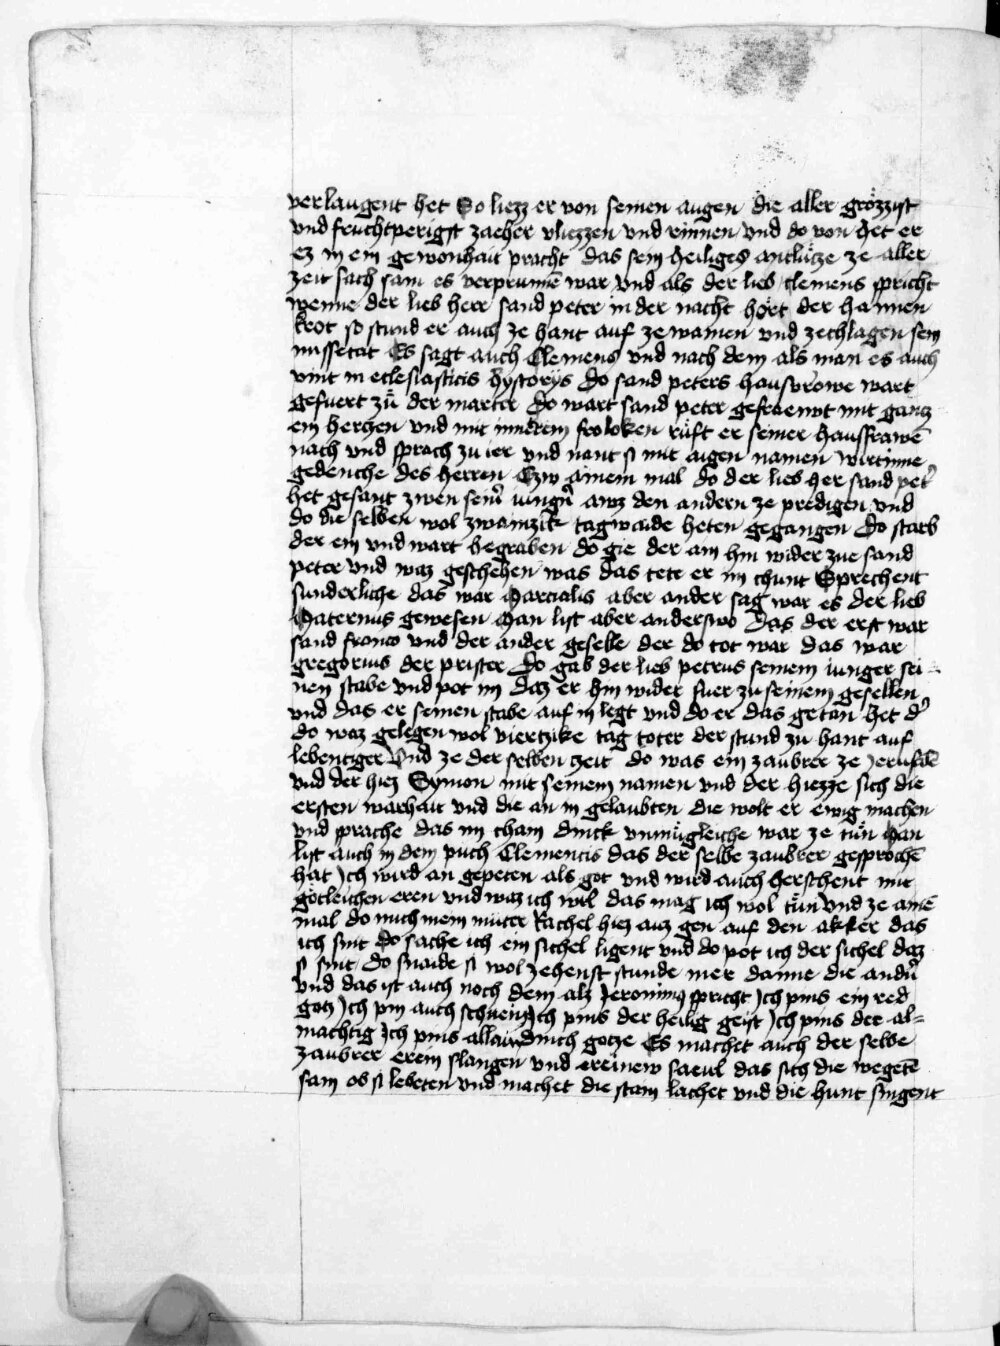 verlaugent het So liezz er von seinen augen die aller grözzist
vnd fruchtperigist zaeher vliezzen vnd rinnen vnd do von het er
ez in ein gewonhait pracht das sein heiliges antlütze ze aller
zeit sach sam es verprunnē war vnd als der lieb clemens spricht
wenne der lieb herr sand peter in der nacht hört der hannen
krot so stund er auch ze hant auf ze wainen vnd ze chlagen sein
missetat Es sagt auch Clemens vnd nach dem als man es auch
vint in ecclesiasticis hystorijs do sand peters hausvrowe wart
gefuert zü der marter do wart sand peter gefraewt mit gantz
em hertzen vnd mit innerem froloken rüft er seiner hausfrawē
nach vnd sprach zu ier vnd nant si mit aigen namen wirtinne
gedenche des herren Czw ainem mal do der lieb her sand pet͛
het gesant zwen sein͛ iung͛n awz den andern ze predigen vnd
do die selben wol zwainzik tagwaide heten gegangen do starb
der ein vnd wart begraben do gie der ain hin wider zue sand
peter vnd waz geschehen was das tett er im chunt Sprechent
sunderliche das war Marcialis aber ander sag war es der lieb
Maternus gewesen Man list aber anderswo das der erst war
sand fronto vnd der ander geselle der do tot war das war
gregorius der prister do gab der lieb petrus seinem iunger sei-
nen stabe vnd pot im daz er hin wider fuer zu seinem gesellen
vnd das er seinen stabe auf in legt vnd do er das getan het d͛
do waz gelegen wol viertzike tag toter der stund zu hant auf
lebentiger Vnd ze der selben tzeit do was ein zaubrer ze jerusalē
vnd der hiez Symon mit seinem namen vnd der hiezze sich die
ersten warhait vnd die an in gelaubten die wolt er ewig machen
vnd sprache das im chain dinck vnmügleiche war ze tün Man
list auch in dem puch Clementis das der selbe zaubrer gesprochē
hat ich wird an gepeten als got vnd wird auch herschent mit
götleichen eren vnd waz ich wil das mag ich wol tün vnd ze ainē
mal do mich mein muter Rachel hiez auz gen auf den akker das
ich snit do sache ich ein sichel ligent vnd do pot ich der sichel daz
si snit do snaide si wol zehenst stunde mer danne die and͛n
vnd das ist auch noch dem alz Jeronimus spricht Ich pins ein red
gotz Ich pin auch schnein Ich pins der heilig geist Ich pins der al-
machtig Ich pins allain dinch gotze Es machet auch der selbe
zaubrer erein slangen vnd ereinew saeul das sich die wegetē
sam ob si lebeten vnd machet die stain lachet vnd die hunt singent